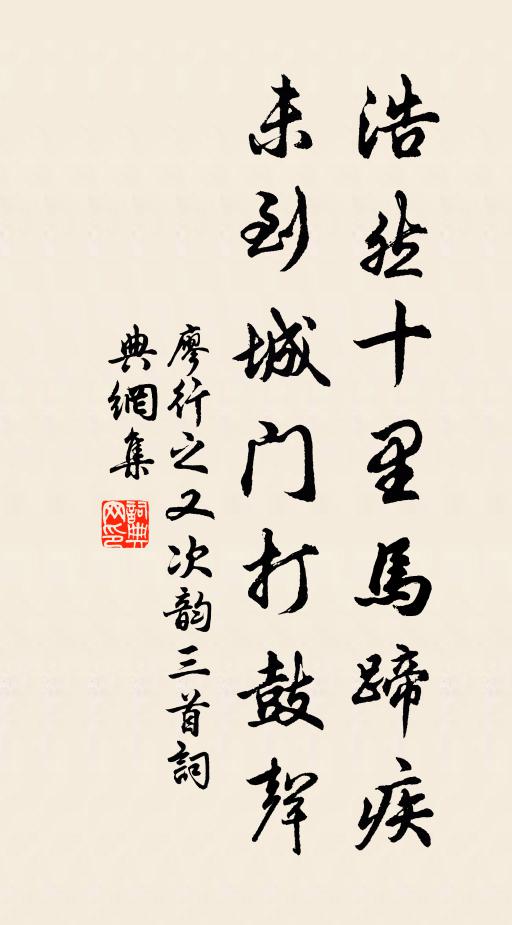 浩然十里馬蹄疾
未到城门打鼓聲
廖行之又次韵三首詞
典網集
詞典網印